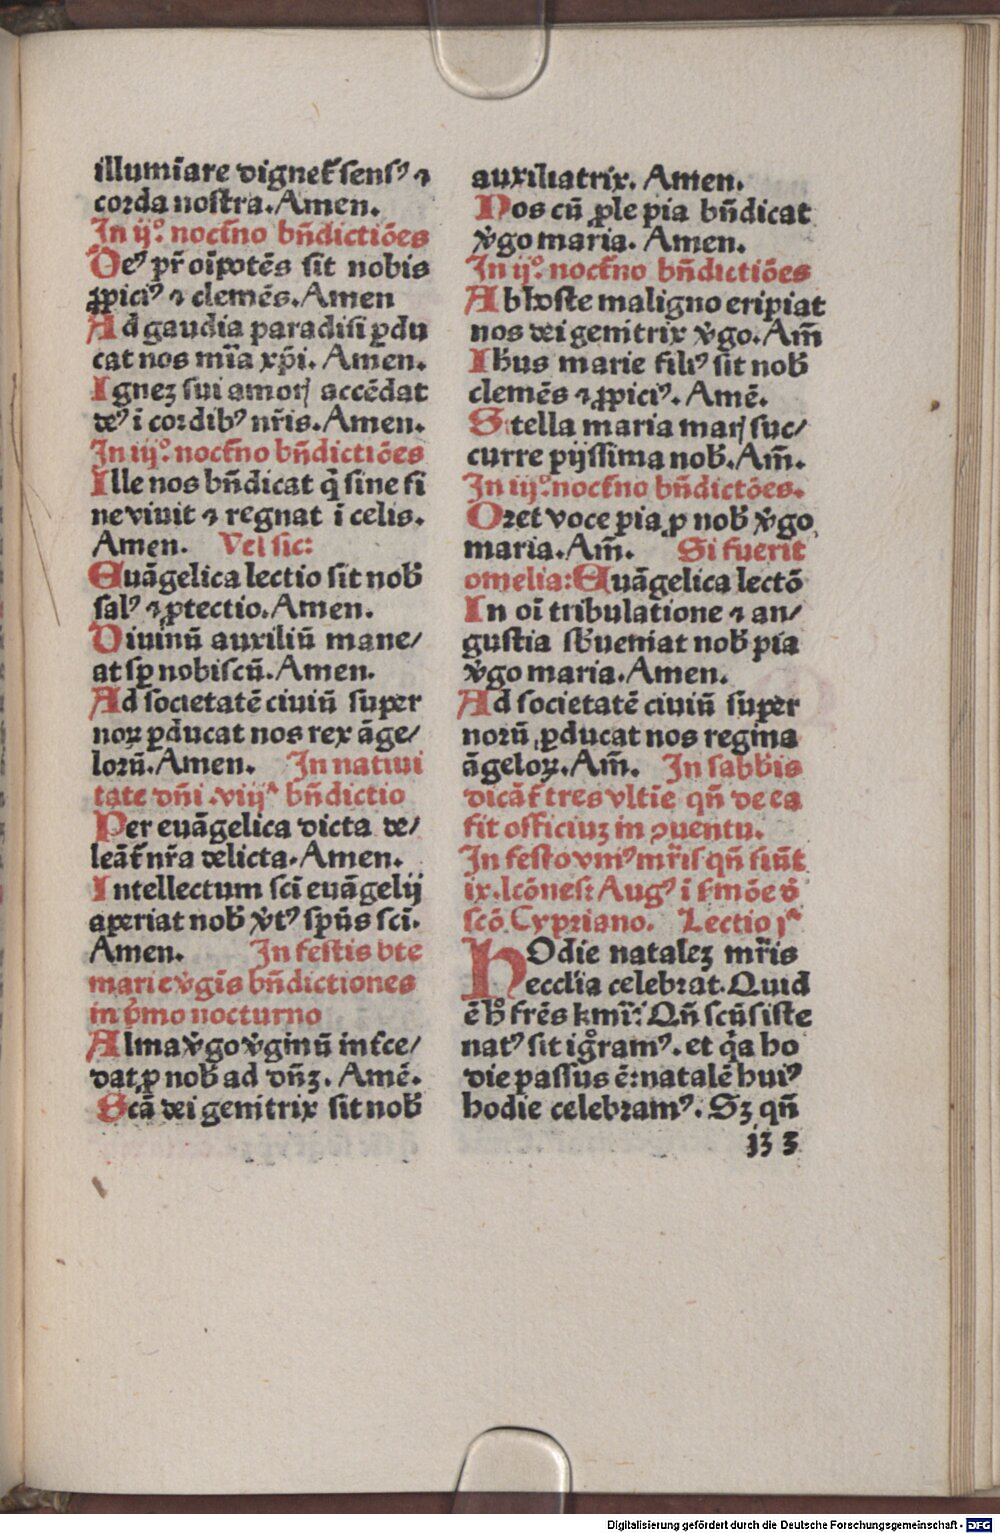 illumīare dignet᷑ sensꝰ ⁊
corda nostra. Amen.
In ijº. noct᷑no bn̄dictiōes
Deꝰ pr̄ oīpotēs sit nobis
ꝓpiciꝰ ⁊ clemēs. Amen
Ad gaudia paradisi ꝑdu
cat nos mīa xp̄i. Amen.
Ignez sui amorꝭ accēdat
deꝰ ī cordibꝰ nr̄is. Amen.
In iijº. noct᷑no bn̄dictiōes
Ille nos bn̄dicat q̄ sine fi
ne viuit ⁊ regnat ī celis.
Amen. Vel sic:
Euāgelica lectio sit nob̄
salꝰ ⁊ ꝓtectio. Amen.
Diuinū auxiliū mane/
at sꝑ nobiscū. Amen.
Ad societatē ciuiū super
noꝝ ꝑducat nos rex āge/
lorū. Amen. In natiui
tate dn̄i .viijª bn̄dictio
Per euāgelica dicta de/
leāt᷑ nr̄a delicta. Amen.
Intellectum scī euāgelij
aperiat nob̄ v̄tꝰ sp̄us scī.
Amen. In festis bte
marie v̄gīs bn̄dictiones
in p̄mo nocturno
Alma v̄go v̄ginū int᷑ce/
dat ꝓ nob̄ ad dn̄ꝫ. Amē.
Scā dei genitrix sit nob̄
auxiliatrix. Amen.
Nos cū ꝓle pia bn̄dicat
v̄go maria. Amen.
In ijº. noct᷑no bn̄dictiōes
Ab hoste maligno eripiat
nos dei genitrix v̄go. Am̄
Ihūs marie filiꝰ sit nob̄
clemēs ⁊ ꝓpiciꝰ. Amē.
Stella maria marꝭ suc/
curre pijssima nob̄. Am̄.
In iijº. noct᷑no bn̄dictōes.
Oret voce pia ꝓ nob̄ v̄go
maria. Am̄. Si fuerit
omelia: Euāgelica lectō
In oī tribulatione ⁊ an/
gustia sb̄ueniat nob̄ pia
v̄go maria. Amen.
Ad societatē ciuiū super
norū ꝑducat nos regina
āgeloꝝ. Am̄. In sabb̄is
dicāt᷑ tres vltīe qn̄ de ea
fit officiuꝫ in ꝯuentu.
In festo vniꝰ mr̄is qn̄ siūt
ix. lcōnes: Augꝰ ī s̄mōe d̄
scō Cypriano. Lectio jª
HOdie natalez mr̄is
ecclīa celebrat. Quid
ē hº frēs kmī: Qn̄ scūs iste
natꝰ sit igºramꝰ. et q̄a ho
die passus ē: natalē huiꝰ
hodie celebramꝰ. Sꝫ qn̄
i3 3
Digitalisierung gefördert durch die Deutsche Forschungsgemeinschaft - DFG